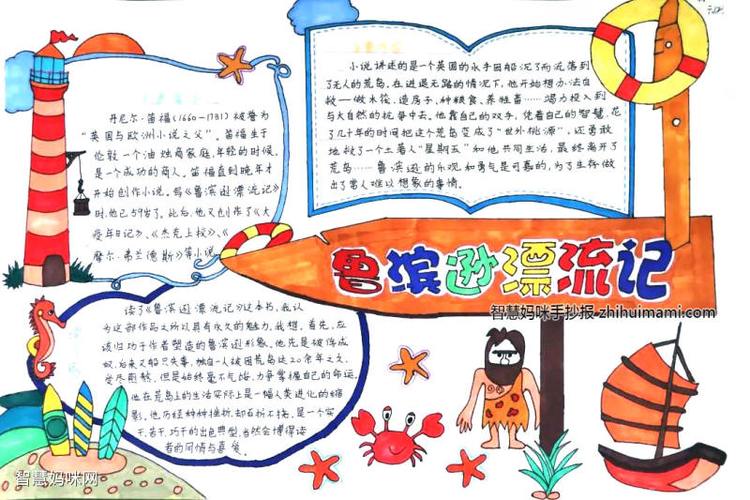 丹尼尔·笛福(1660—1731)被誉为
"英国与欧洲小说之父"。笛福生于
伦敦一个油烛商家庭,年轻的时候,
是一个成功的商人。笛福直到晚年才
开始创作小说,写《鲁滨逊漂流记》
时,他已59岁了。此后,他又创作了《大
疫年日记》、《杰克上校》、《
摩尔·弗兰德斯》等小说
小说讲述的是一个英国的水手因船沉了而流落到
了无人的荒岛,在进退无路的情况下,他开始想办法自
救——做木筏、造房子、种粮食、养牲畜……竭力投入到
与大自然的抗争中去。他靠自己的双手,凭着自己的智慧,花
了几十年的时间把这个荒岛变成了"世外桃源",还勇敢
地救了一个土著人"星期五"和他共同生活,最终离开了
荒岛……鲁滨逊的乐观和勇气是可嘉的,为了生存做
出了常人难以想象的事情。
鲁滨逊漂流记
智慧妈咪手抄报 zhihuimami.com
读了《鲁滨逊漂流记》这本书,我认
为这部作品之所以具有永久的魅力,我想,首先,应
该归功于作者塑造的鲁滨逊形象。他先是被俘成
奴,后来又船只失事,独自一人被困荒岛达20余年之久,
受尽煎熬。但是始终毫不气馁,力争掌握自己的命运,
他在荒岛上的生活实际上是一幅人类进化的缩
影,他历经种种挫折,却百折不挠,是一个实
干、苦干、巧干的出色典型,当然会博得读
者的同情与喜爱。
智慧妈咪网